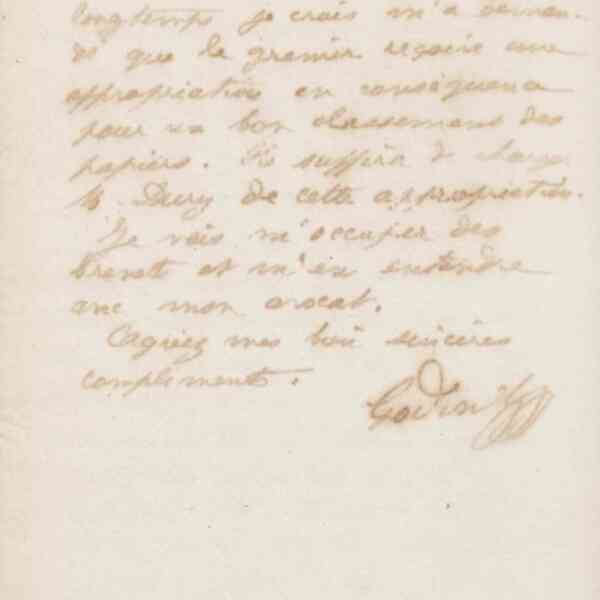 longtemps je crois m'a deman-
dé que le grenier reçoive une
appropriation en conséquence
pour un bon classement des
papiers. Il suffira de charger
M. Dury de cette appropriation.
Je vais m'occuper des
brevets et m'en entendre
avec mon avocat.
Agréez mes bien sincères
compliments.
Godin